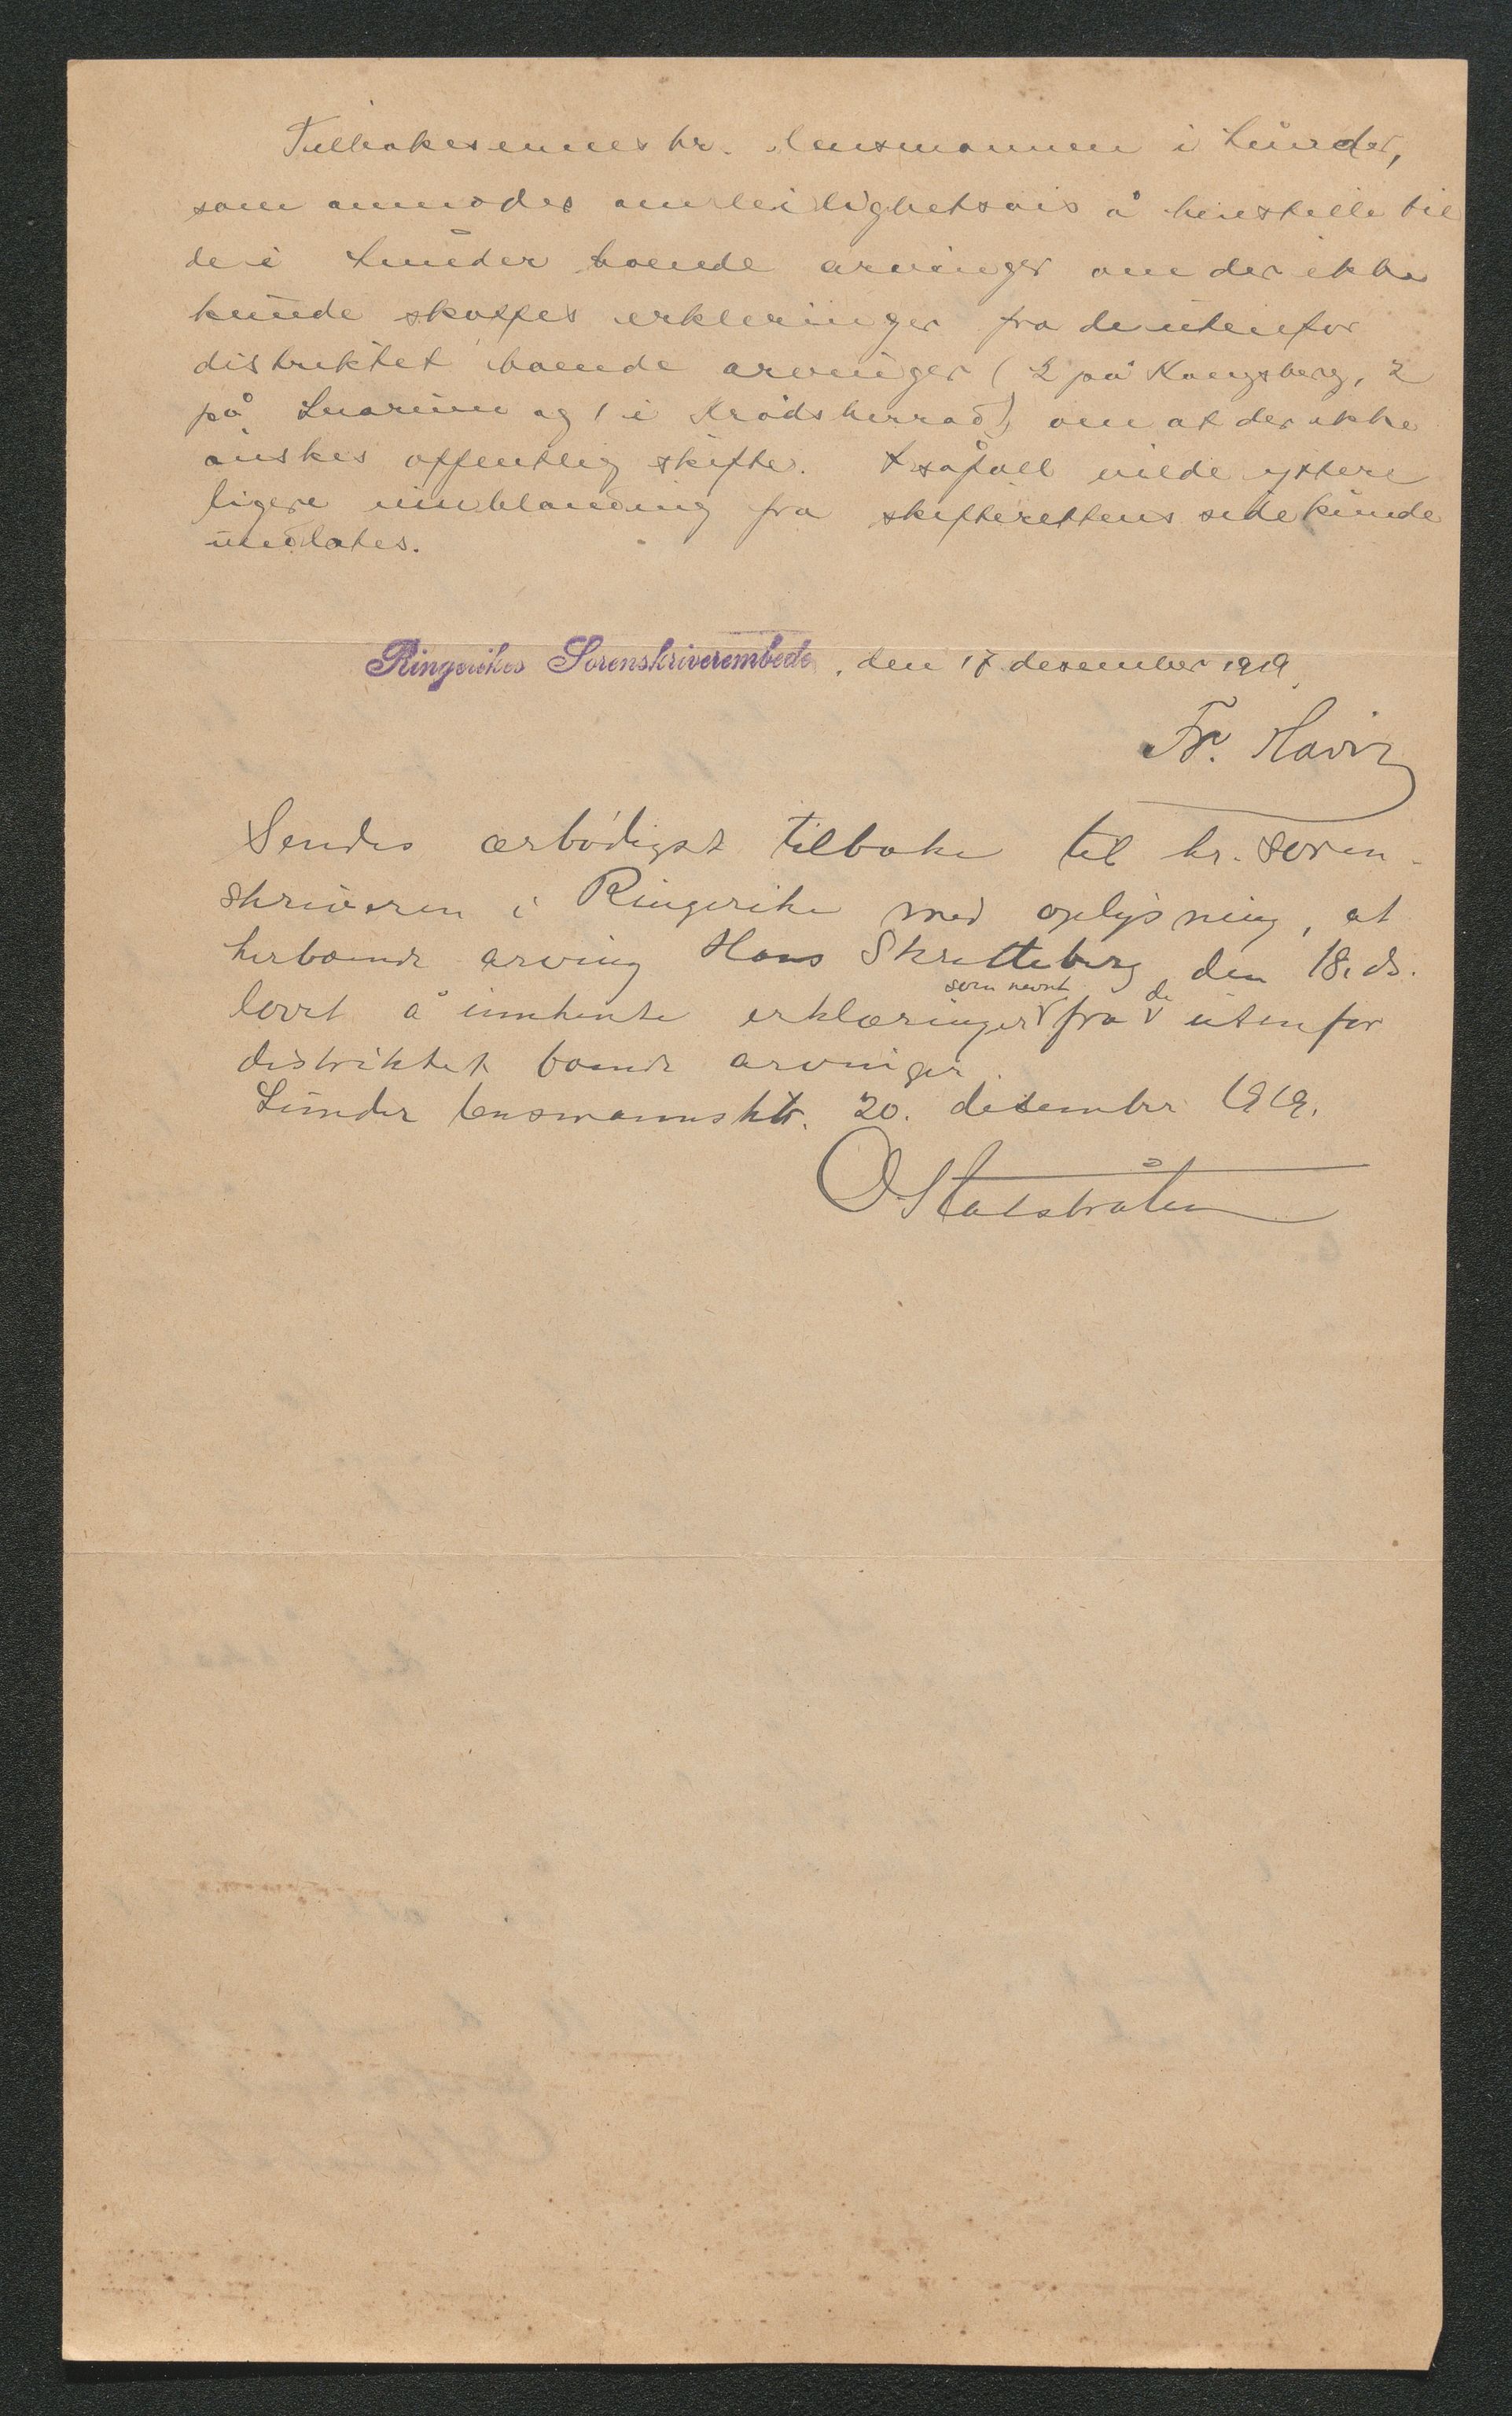 Tilbakesennes hr. lensmannen i Lunder,
som anmodes om leilighetsvis å henstille til
de i Lunder boende arvinger om der ikke
kunde skaffes erkleringer fra de utenfor
distriktet boende arvinger (2 på Kongsberg, 2
på Snarum og 1 i Krødsherrad) om at der ikke
ønskes offentlig skifte. I såfall vilde ytter
ligere innblanding fra skifterettens side kunde
undlates.
Ringerikes Sorenskriverembede, den 17 desember 1919.
Fr.
Sendes ærbødigst tilbake til hr. soren-
skriveren i Ringerike med oplysning, at
herboende arving Hans Skretteberg den 18. ds.
lovet å innhente erklæringer som nevnt fra de utenfor
distriktet boende arvinger.
Lunder lensmannsktr. 20. desember 1919.
O.